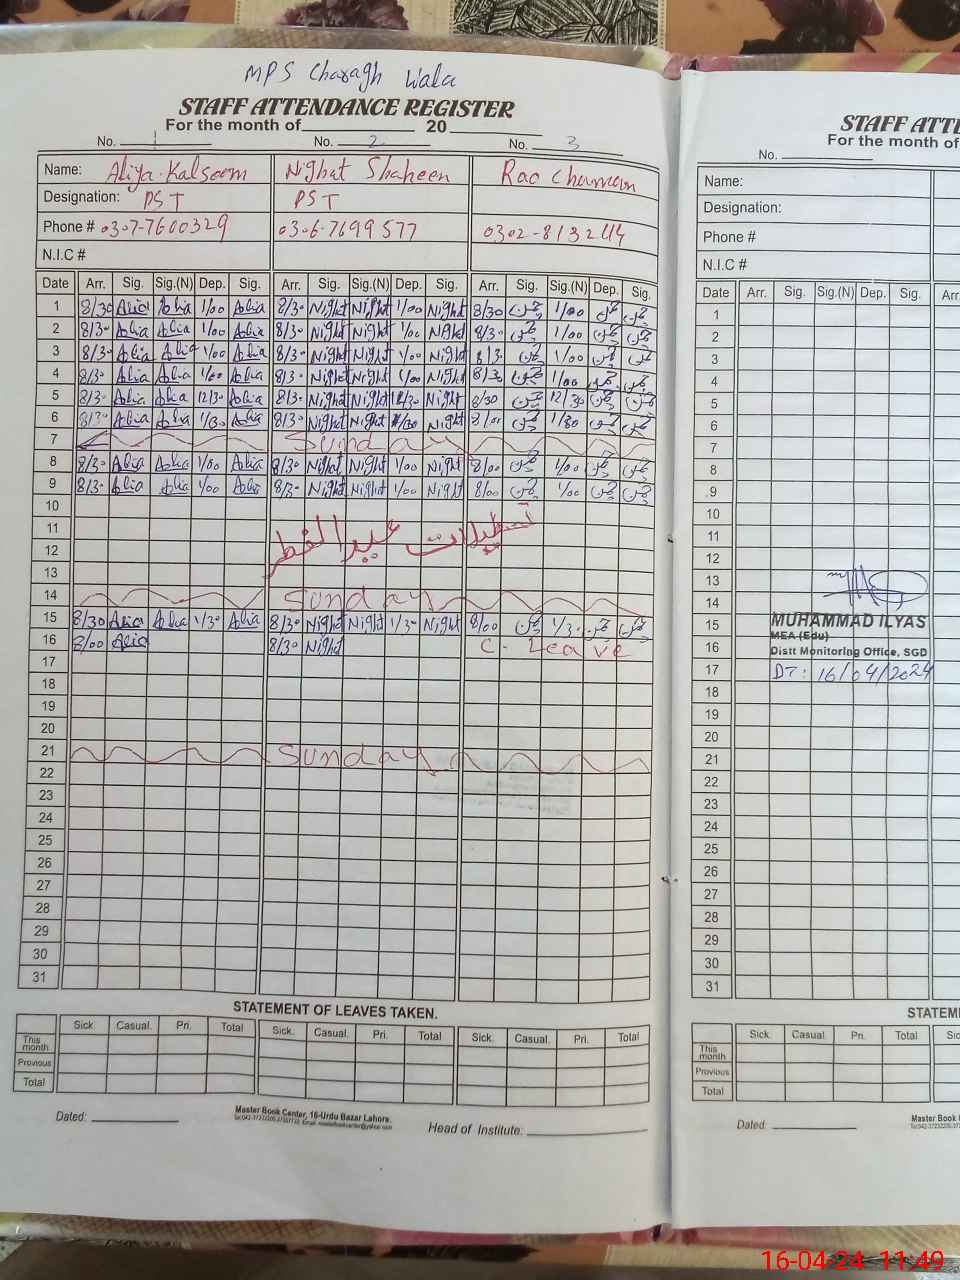 MPS Charagh Wala
STAFF ATTENDANCE REGISTER
For the month of 20
No. 1 No. 2 No. 3
Name: Aliya Kalsoom Nighat Shaheen Rao Chaman
Designation: PST PST
Phone # 0307-7600329 0306-7699577 0302-8132414
N.I.C #
Date Arr. Sig. Sig.(N) Dep. Sig. Arr. Sig. Sig.(N) Dep. Sig. Arr. Sig. Sig.(N) Dep. Sig.
1 8/30 Alia Alia 1/00 Alia 8/30 Nighat Nighat 1/00 Nighat 8/30 چمن 1/00 چمن چمن
2 8/30 Alia Alia 1/00 Alia 8/30 Nighat Nighat 1/00 Nighat 8/30 چمن 1/00 چمن چمن
3 8/30 Alia Alia 1/00 Alia 8/30 Nighat Nighat 1/00 Nighat 8/30 چمن 1/00 چمن چمن
4 8/30 Alia Alia 1/00 Alia 8/30 Nighat Nighat 1/00 Nighat 8/30 چمن 1/00 چمن چمن
5 8/30 Alia Alia 12/30 Alia 8/30 Nighat Nighat 12/30 Nighat 8/30 چمن 12/30 چمن چمن
6 8/30 Alia Alia 1/30 Alia 8/30 Nighat Nighat Nighat 8/00 چمن 1/30 چمن چمن
7 Sunday
8 8/30 Alia Alia 1/00 Alia 8/30 Nighat Nighat 1/00 Nighat 8/00 چمن 1/00 چمن چمن
9 8/30 Alia Alia 1/00 Alia 8/30 Nighat Nighat 1/00 Nighat 8/00 چمن 1/00 چمن چمن
10
11 تعطیلات عید الفطر
12
13
14 Sunday
15 8/30 Alia Alia 1/30 Alia 8/30 Nighat Nighat 1/30 Nighat 8/00 چمن 1/30 چمن چمن
16 8/00 Alia 8/30 Nighat C. Leave
17
18
19
20
21 Sunday
22
23
24
25
26
27
28
29
30
31
STATEMENT OF LEAVES TAKEN.
Sick. Casual. Pri. Total Sick. Casual. Pri. Total Sick. Casual. Pri. Total
This month
Previous
Total
Dated:
Master Book Center, 16-Urdu Bazar Lahore.
Head of Institute:
STAFF ATTE
For the month of
No.
Name:
Designation:
Phone #
N.I.C #
Date Arr. Sig. Sig.(N) Dep. Sig. Arr
1
2
3
4
5
6
7
8
9
10
11
12
13
14
15
16
17
18
19
20
21
22
23
24
25
26
27
28
29
30
31
MUHAMMAD ILYAS
MEA (Edu)
Distt Monitoring Office, SGD
DT: 16/04/2024
STATEM
Sick. Casual. Pri. Total Sic
This month
Previous
Total
Dated:
Master Book
16-04-24 11:49